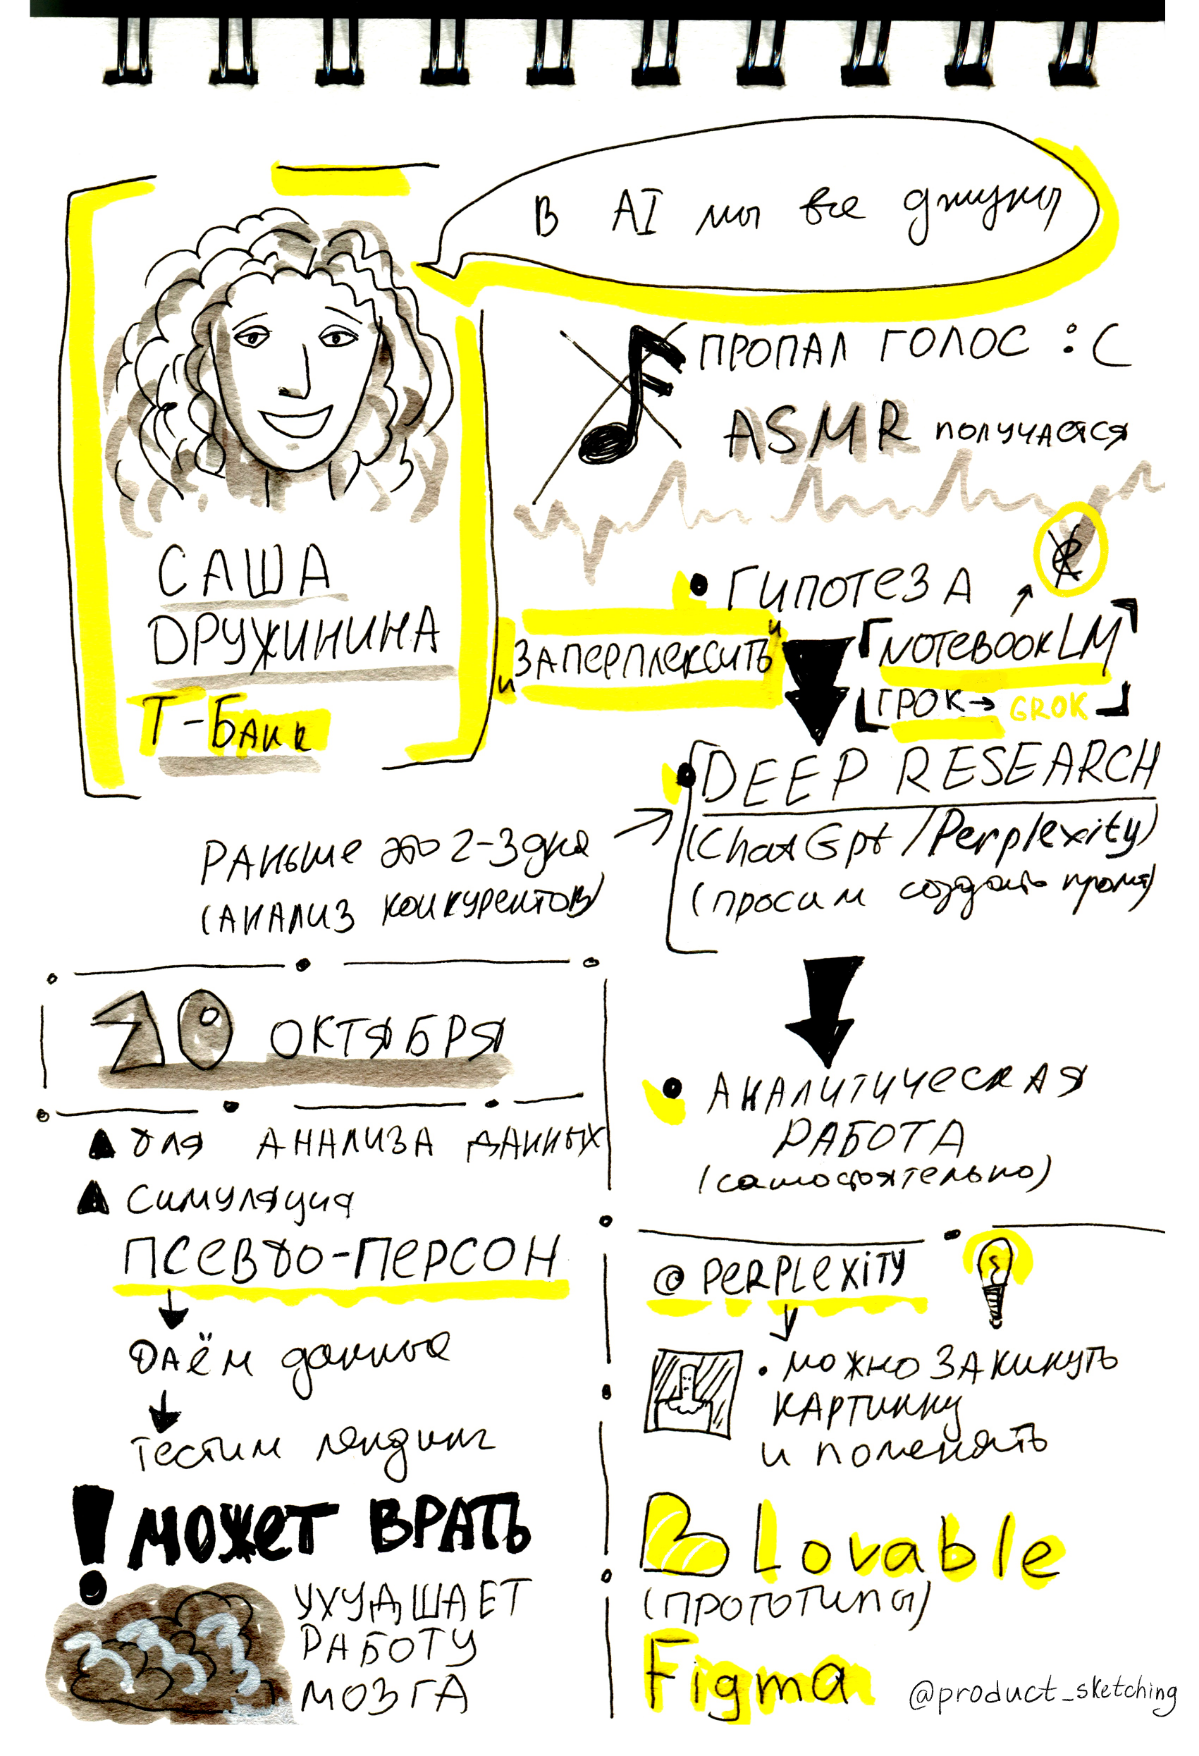 В AI мы все джуны
ПРОПАЛ ГОЛОС :C
ASMR получается
САША
ДРУЖИНИНА
Т-Банк
ГИПОТЕЗА
"ЗАПЕРПЛЕКСИТЬ"
NOTEBOOKLM
ГРОК → GROK
DEEP RESEARCH
(ChatGpt / Perplexity)
(просим создать промт)
РАНЬШЕ это 2-3 дня
(АНАЛИЗ КОНКУРЕНТОВ)
АНАЛИТИЧЕСКАЯ
РАБОТА
(самостоятельно)
10 ОКТЯБРЯ
для АНАЛИЗА ДАННЫХ
Симуляция
ПСЕВДО-ПЕРСОН
Даём данные
Тестим лендинг
! МОЖЕТ ВРАТЬ
УХУДШАЕТ
РАБОТУ
МОЗГА
@ PERPLEXITY
• МОЖНО ЗАКИНУТЬ
КАРТИНКУ
И ПОМЕНЯТЬ
Lovable
(ПРОТОТИПЫ)
Figma
@product_sketching